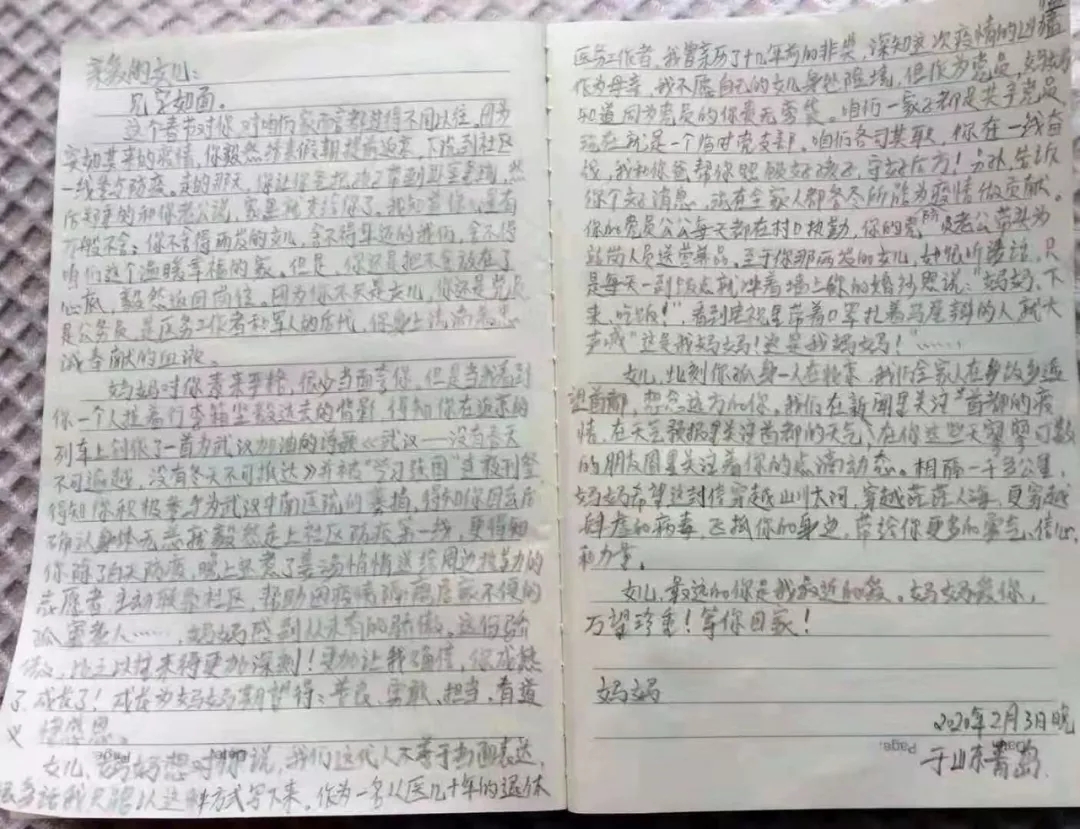 亲爱的女儿：
见字如面。
这个春节对你、对咱们家而言都过得不同以往，因为
突如其来的疫情，你毅然结束假期提前返京，下沉到社区
一线参与防疫。走的那天，你让你爸把孩子带到
后的和你老公说，家里就交给你了。我知道你心里有
万般不舍：你不舍得两岁的女儿，舍不得年迈的我们，舍不得
咱们这个温暖幸福的家。但是，你还是把不舍放在了
心底，毅然返回岗位。因为你不只是女儿，你还是党员
是公务员，是医务工作者和军人的后代，你身上流淌着忠
诚奉献的血液。
妈妈对你素来严格，很少当面夸你，但是当我看到
你一个人推着行李箱坚毅远去的背影，得知你在返京的
列车上创作了一首为武汉加油的诗歌《武汉——没有春天
不可逾越，没有冬天不可抵达》并被“学习强国”连载刊登，
得知你积极参与为武汉中南医院的募捐，得知你回京后
确认身体无恙就毅然走上社区防疫第一线，更得知
你除了白天防疫，晚上还煮了姜汤悄悄送给周边执勤的
志愿者，主动联系社区，帮助因疫情隔离居家不便的
孤寡老人……，妈妈感到从未有的骄傲。这份骄
傲，比之以往来得更加深刻！更加让我确信，你成熟
了，成长了！成长为妈妈期望得：善良、勇敢、担当、有道
义、懂感恩。
女儿，妈妈想对你说，我们这代人不善于当面表达，
很多话我只能以这种方式写下来。作为一名从医几十年的退休
医务工作者，我曾亲历了十几年前的非典，深知这次疫情的凶猛
作为母亲，我不愿自己的女儿身处险境，但作为党员，
知道因为党员的你责无旁贷。咱们一家子都是共产党员
现在就是一个临时党支部，咱们各司其职，你在一线奋
战，我和你爸帮你照顾好孩子，守好后方！另外，告诉
你个好消息，现在全家人都尽己所能为疫情做贡献。
你的党员公公每天都在村口执勤，你的党员老公带头为
站岗人员送营养品。至于你那两岁的女儿，她很听话，只
是每天一到饭点就冲着墙上你的婚纱照说：“妈妈，下
来，吃饭！”，看到电视里带着口罩扎着马尾辫的人就大
声喊“这是我妈妈！这是我妈妈！”……
女儿，此刻你孤身一人在北京，我们全家人在乡故乡遥
望首都，想念远方的你。我们在新闻里关注首都的疫
情，在天气预报里关注首都的天气，在你这些天寥寥可数
的朋友圈里关注着你的点滴动态。相隔一千多公里，
妈妈希望这封信穿越山川大河，穿越茫茫人海，更穿越
肆虐的病毒，飞抵你的身边，带给你更多的勇气、信心
和力量。
女儿，最远的你是我最近的爱。妈妈爱你，
万望珍重！等你回家！
妈妈
2020年2月3日晚
Page:
于山东青岛